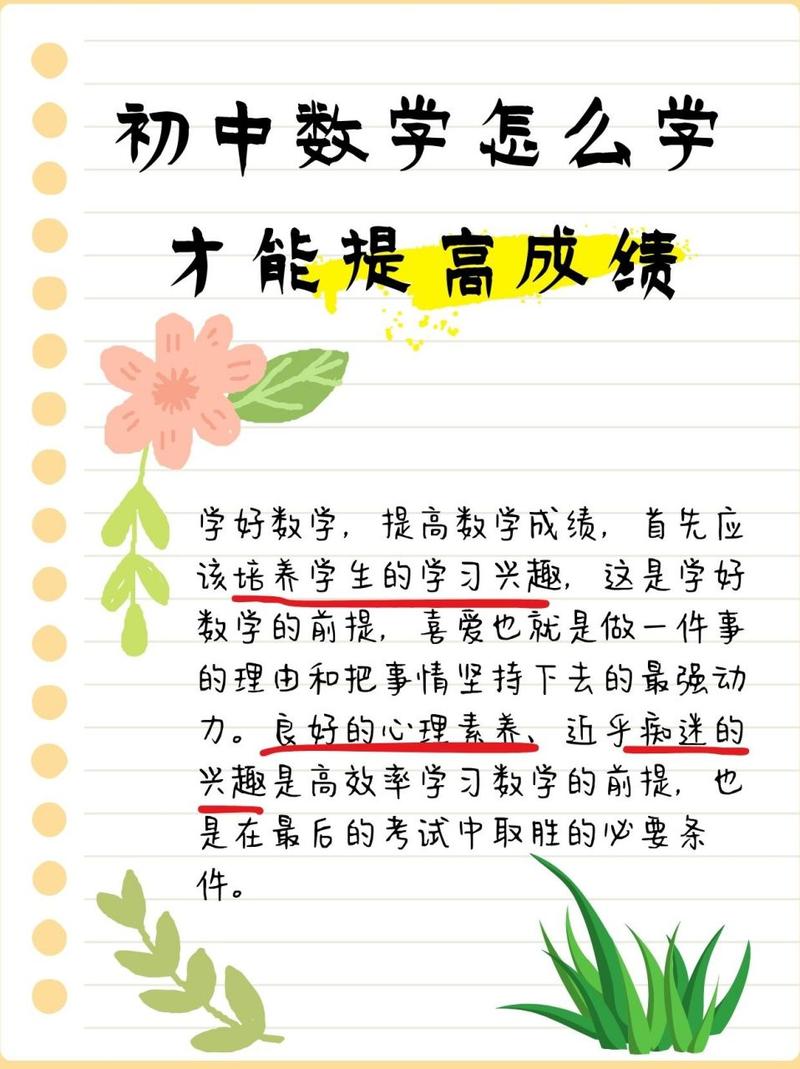 初中数学怎么学
才能提高成绩
学好数学，提高数学成绩，首先应
该培养学生的学习兴趣，这是学好
数学的前提，喜爱也就是做一件事
的理由和把事情坚持下去的最强动
力。良好的心理素养、近乎痴迷的
兴趣是高效率学习数学的前提，也
是在最后的考试中取胜的必要条
件。